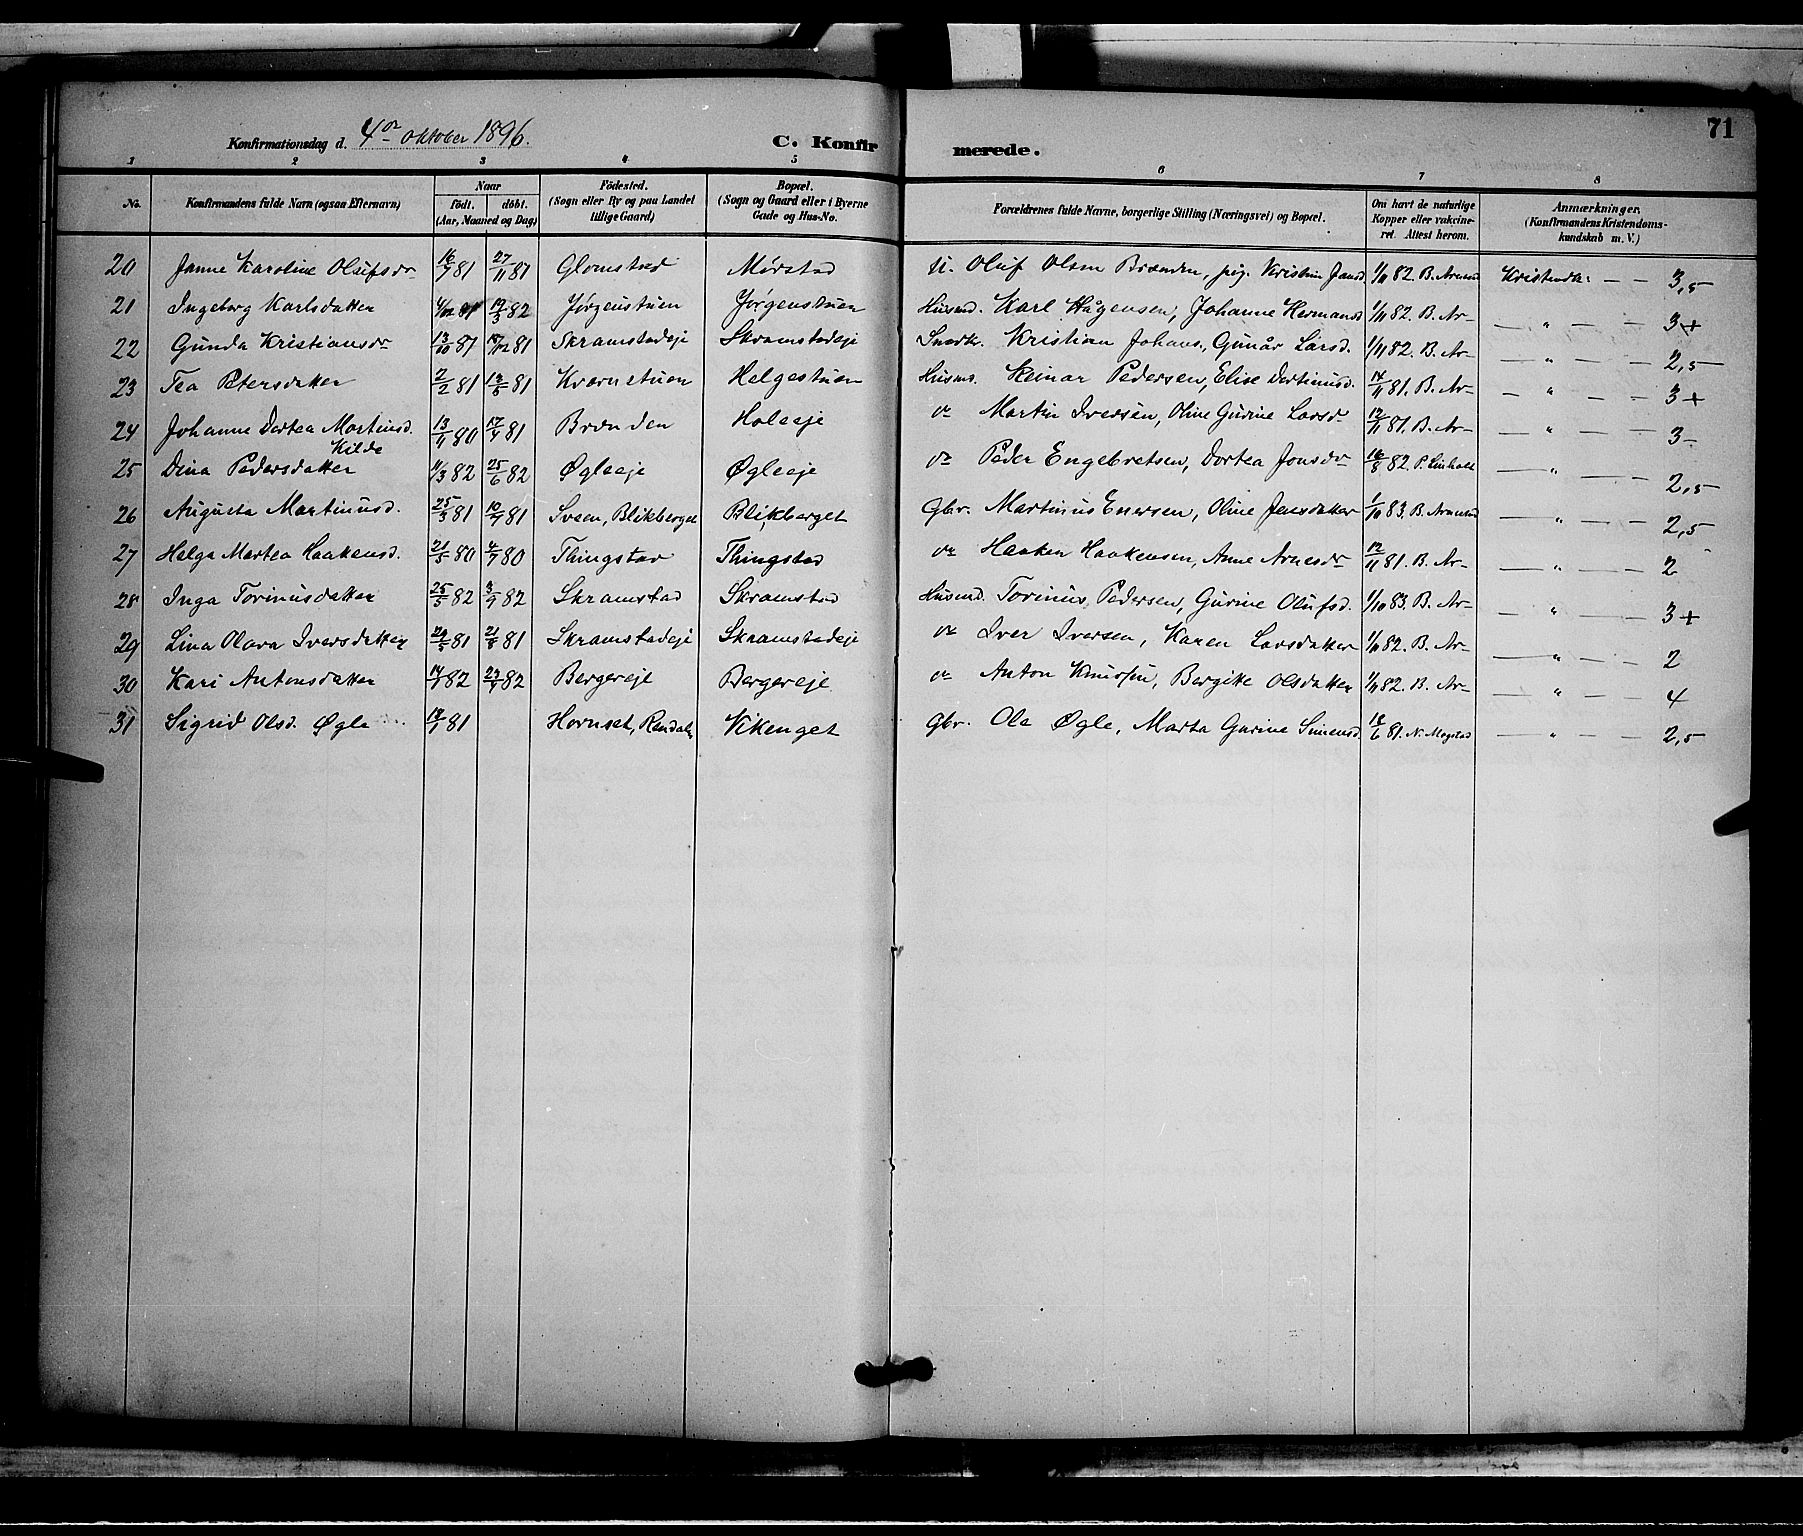 71
Konfirmationsdag d. 4de oktober 1896.
C. Konfirmerede.
1 2 3 4 5 6 7 8
No. Konfirmandens fulde Navn (ogsaa Efternavn) Naar födt. döbt. (Aar, Maaned og Dag) Födested. (Sogn eller By og paa Landet tillige Gaard) Bopæl. (Sogn og Gaard eller i Byerne Gade og Hus-No. Forældrenes fulde Navne, borgerlige Stilling (Næringsvei) og Bopæl. Om havt de naturlige Kopper eller vakcineret. Attest herom. Anmærkninger. (Konfirmandens Kristendomskundskab m. V.)
20 Janne Karoline Olufsdr 16/9 81 27/11 81 Glomstad Mørstad U. Oluf Olsen Brænden, pig. Kristine Jansd. 1/11 82. B. Arnesad Kristendk: — — 3,5
21 Ingeborg Karlsdatter 4/12 81 12/3 82 Jørgenstuen Jørgenstuen Husmd. Karl Hågensen, Johanne Hermansd 1/11 82. B. Ar— — " — — 3+
22 Gunda Kristiansdr 13/10 81 18/12 81 Skramstadeje Skramstadeje Snedk. Kristian Johans., Gunår Larsd. 1/11 82. B. Ar— — " — — 2,5
23 Tea Petersdatter 2/2 81 13/6 81 Kværnstuen Helgestuen Husms. Reinar Pedersen, Elise Dortinusd. 14/11 81. B. Ar— — " — — 3+
24 Johanne Dortea Martinsd. Kilde 13/11 80 17/4 81 Brænden Holeeje do Martin Iversen, Oline Gurine Larsdr 12/11 81. B. Ar— — " — — 3-
25 Dina Pedersdatter 11/3 82 25/6 82 Øgleeje Øgleeje do Peder Engebretsen, Dortea Jonsdr 16/8 82. P. Linholt — " — — 2,5
26 Augusta Martinusd. 25/3 81 10/7 81 Sveen, Blikberget Blikberget Gbr. Martinus Enersen, Oline Jensdatter 1/10 83. B. Arnesad — " — — 2,5
27 Helga Martea Haakensd. 21/5 80 4/7 80 Thingstad Thingstad do Haaken Haakensen, Anne Arnesdr 12/11 81. B. Ar— — " — — 2
28 Inga Torinusdatter 25/5 82 3/9 82 Skramstad Skramstad Husmd. Torinus Pedersen, Gurine Olufsd. 1/10 83. B. Ar— — " — — 3+
29 Lina Olava Iversdatter 29/5 81 21/8 81 Skramstadeje Skramstadeje do Iver Iversen, Karen Larsdatter 1/11 82. B. Ar— — " — — 2
30 Kari Antonsdatter 14/7 82 23/7 82 Bergereje Bergereje do Anton Knutsen, Bergitte Olsdatter 1/11 82. B. Ar— — " — — 4
31 Sigrid Olsd. Øgle 18/7 81 Hornset, Rendalen Vikenget Gbr. Ole Øgle, Marta Gurine Simensd. 18/6 81. N. Mogstad — " — — 2,5